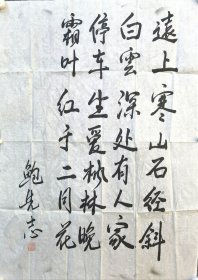 遠上寒山石径斜
白雲深处有人家
停车坐爱枫林晚
霜叶红于二月花
鲍先志